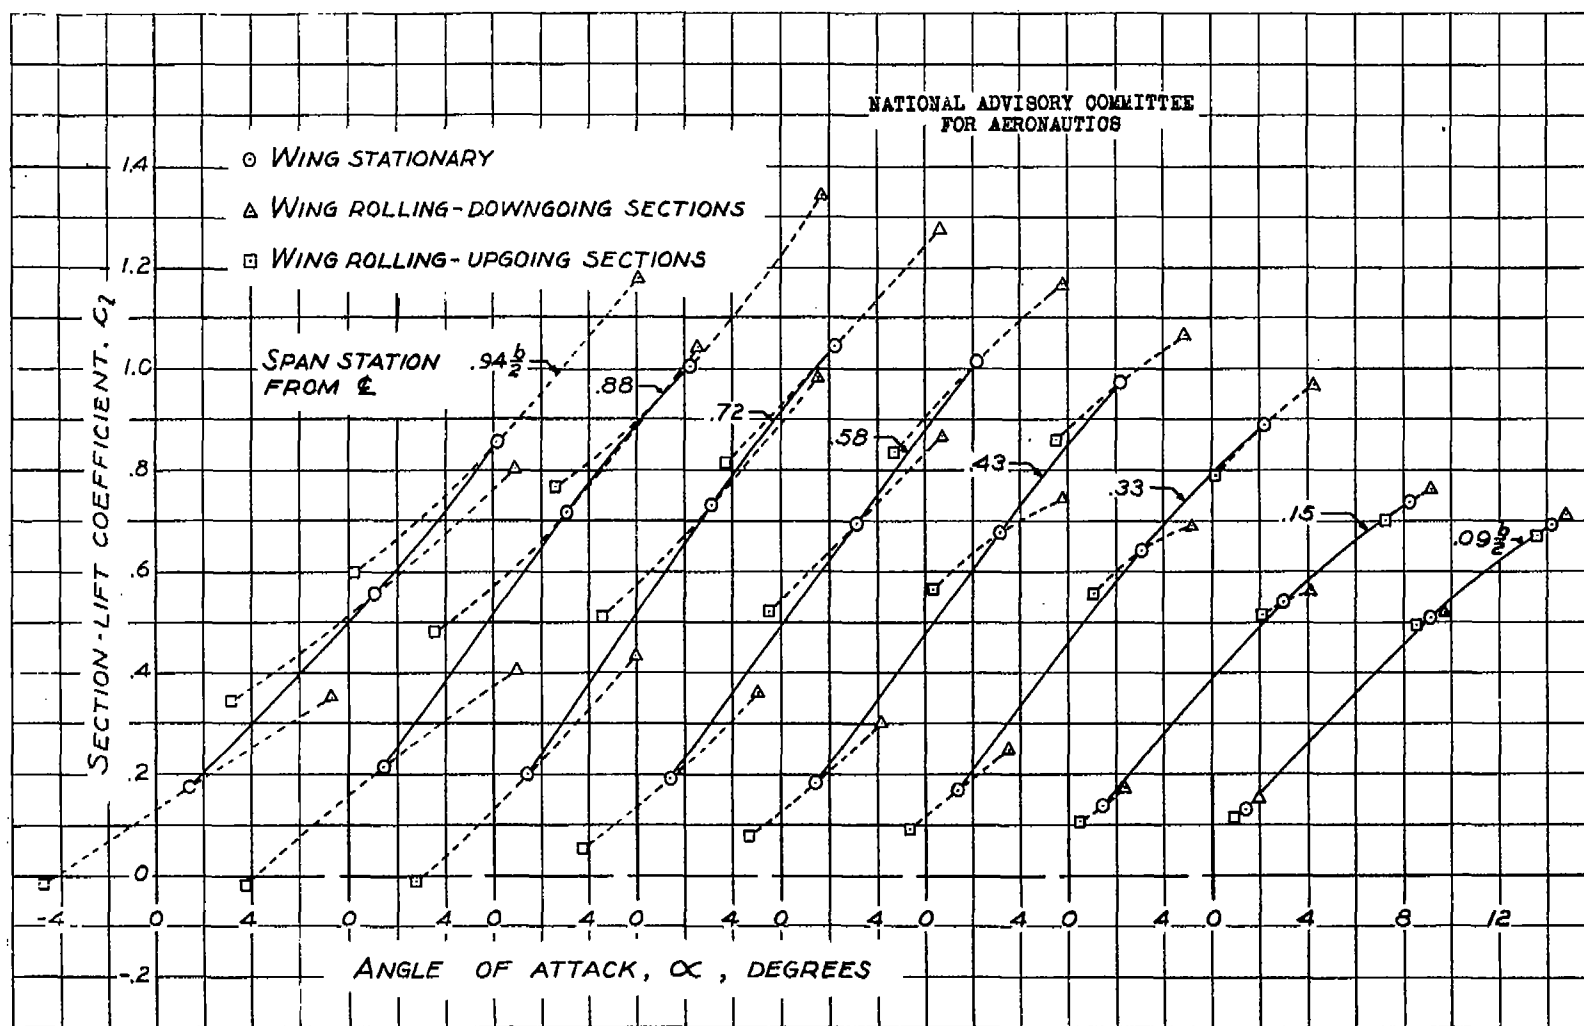 NATIONAL ADVISORY COMMITTEE
FOR AERONAUTICS
⊙ WING STATIONARY
△ WING ROLLING-DOWNGOING SECTIONS
⊡ WING ROLLING-UPGOING SECTIONS
SPAN STATION
FROM ℄
.94 b/2
.88
.72
.58
.43
.33
.15
.09 b/2
SECTION-LIFT COEFFICIENT, cl
1.4
1.2
1.0
.8
.6
.4
.2
0
-.2
-4 0 4 0 4 0 4 0 4 0 4 0 4 0 4 0 4 8 12
ANGLE OF ATTACK, ∝, DEGREES